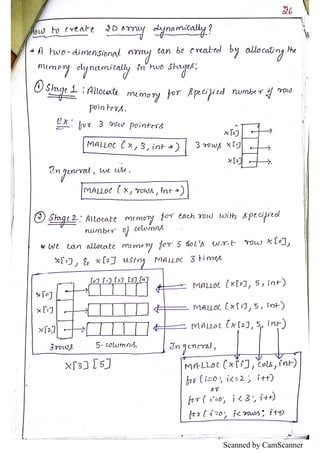 26
How to create 2D array dynamically?
* A two-dimensional array can be created by allocating the
memory dynamically in two stages:
① Stage 1: Allocate memory for specified number of row
pointers.
Ex: for 3 row pointers
MALLOC (x, 3, int *)
x[0]
3 rows x[1]
x[2]
In general, we use.
MALLOC (x, rows, int *)
② Stage 2: Allocate memory for each row with specified
number of columns.
* We can allocate memory for 5 col's w.r.t row x[0],
x[1], & x[2] using MALLOC 3 times.
[0] [1] [2] [3] [4]
x[0]
MALLOC (x[0], 5, int)
x[1]
MALLOC (x[1], 5, int)
x[2]
MALLOC (x[2], 5, int)
3 rows 5-columns.
In general,
x[3][5]
MALLOC (x[i], cols, int)
for (i=0; i<=2; i++)
or
for (i=0; i<3; i++)
for (i=0; i<rows; i++)
Scanned by CamScanner